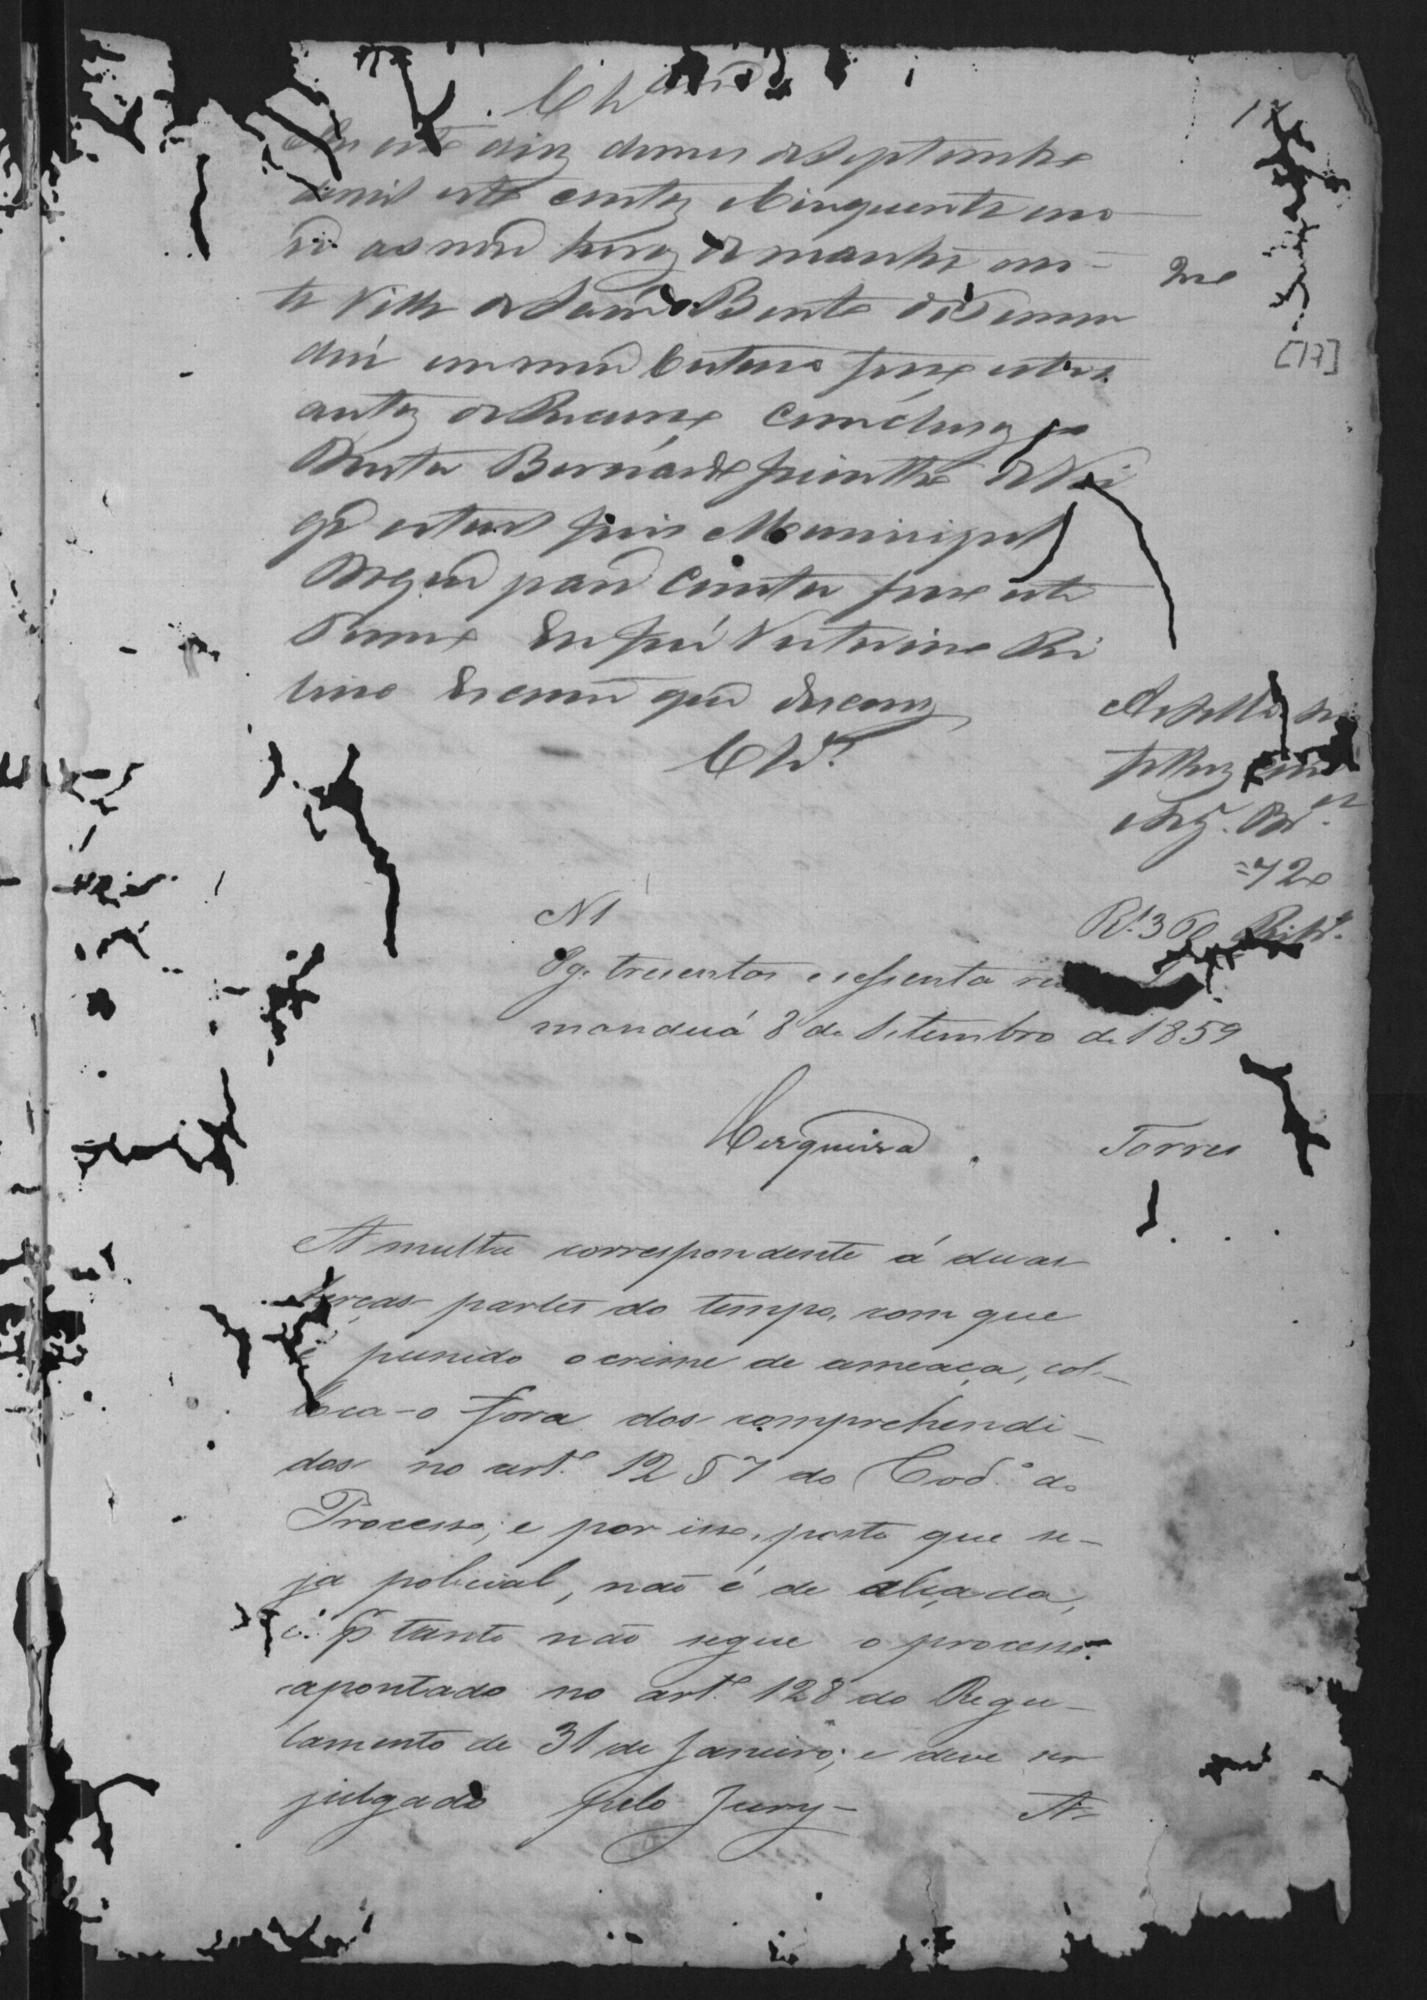 Clz.am
Aos oito dias do mes de Septembro
de mil oito centos e Cincoenta e no
ve as nove horas da manhã nes-
ta Villa de São Bento do Taman
duá em meu Cartorio faço estes
autos de Recurso Conclusos ao
Doutor Bernardo Jacintho da Vei
ga actual Juis Municipal
do que para Constar faço este
Termo Eu José Victorino Ri
beiro Escrivão que Escrevi
Clz.
200
[17]
A sello
folhas
=720
R.s 360
N 1
Pg. trezentos e sessenta reis
manduá 8 de Setembro de 1859
Cerqueira Torres
A multa correspondente á duas
terças partes do tempo, com que
é punido o crime de ameaça, col-
loca-o fora dos comprehendi-
dos no art.º 12 § 7 do Cod.º do
Processo; e por isso, posto que se-
ja policial, não é de alçada,
e p.r tanto não segue o processo
apontado no art.º 128 do Regu-
lamento de 31 de Janeiro; e deve ser
julgado pelo Jury-